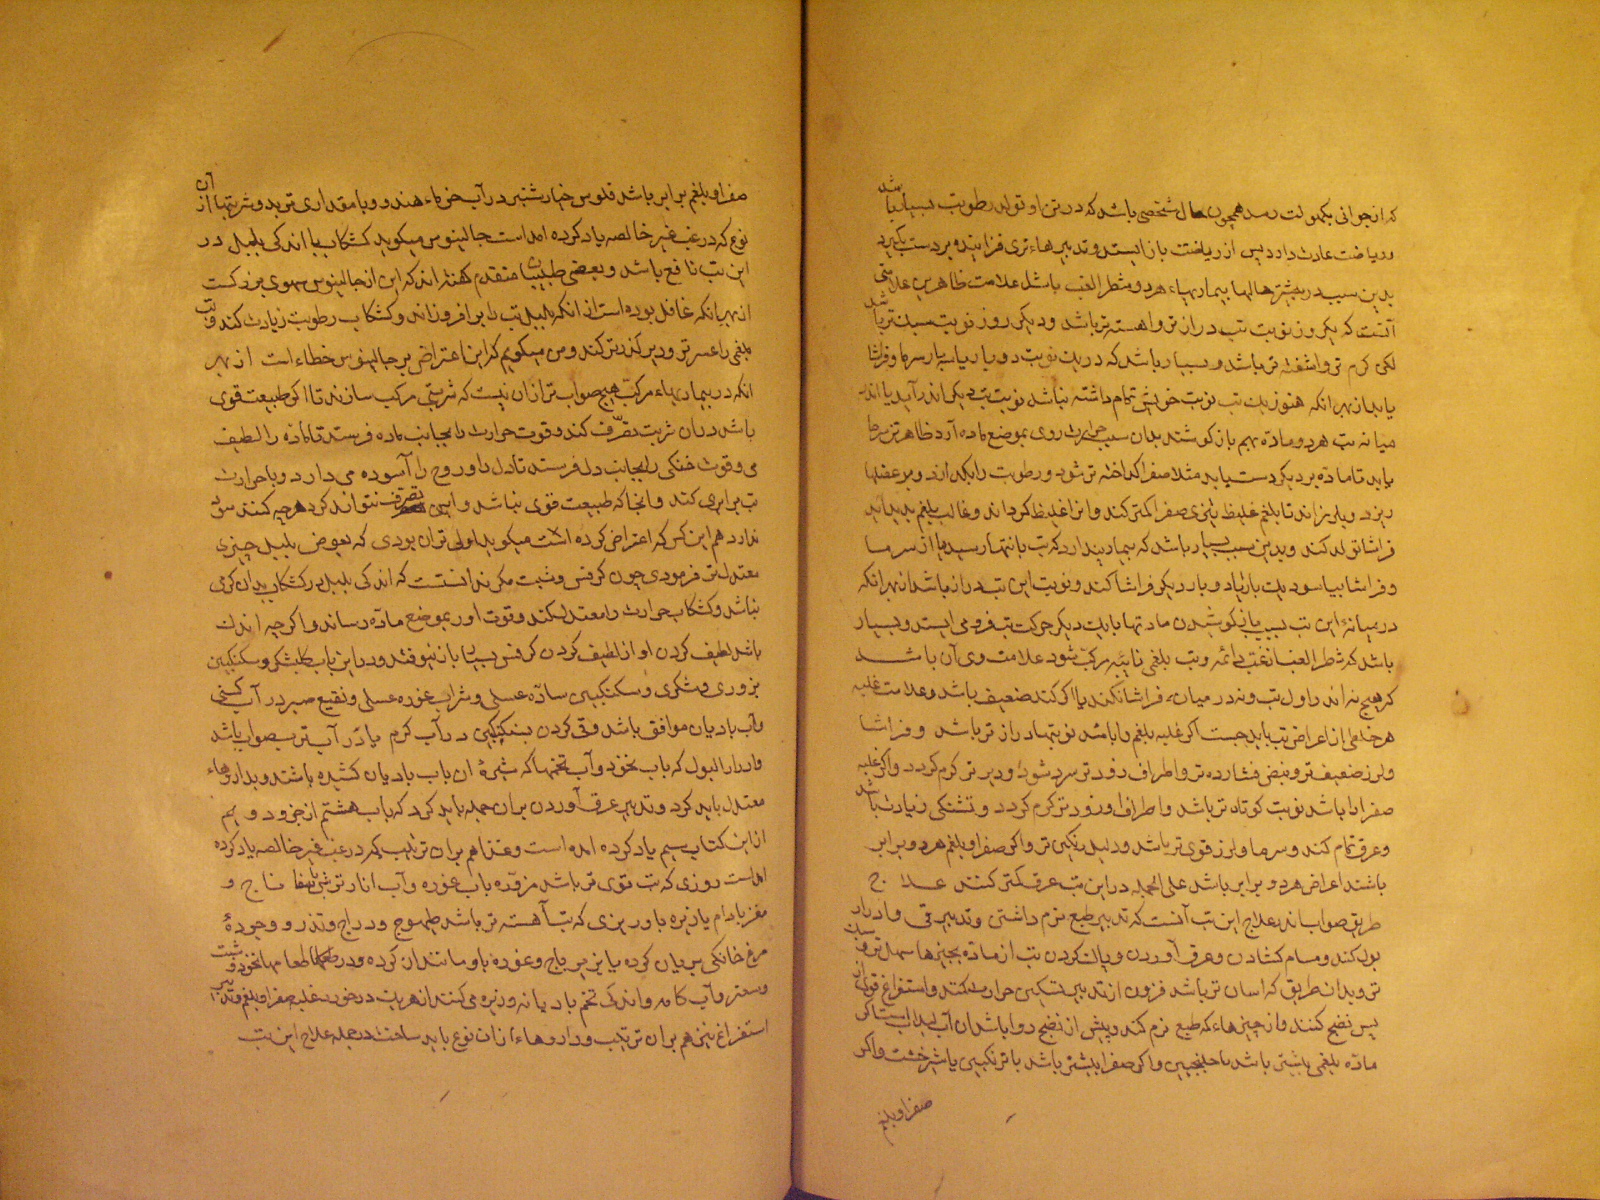 که از جوانی بکهولت رسد همچون حال شخصی باشد که در تن او تولد رطوبت بسیار باشد
و ریاضت عادت دارد پس از ریاضت باز ایستد و تدبیرهاء تری فزاینده بر دست گیرد
بدین سبب در بیشتر حالها بیماریهاء هر دو شطر الغب باشد علامت ظاهرترین علامتی
آنست که یک روز نوبت تب درازتر و آهسته تر باشد و دیگر روز نوبت سبکتر باشد
لکن گرم تر و آشفته تر باشد و بسیار باشد که در یک نوبت دو بار یا سه بار سرما و فراشا
یابد از بهر آنکه هنوز یک تب نوبت خویش تمام داشته نباشد نوبت تب دیگر اندر آید یا اندر
میانه تب هر دو ماده بهم باز کوشند بدان سبب حرارت روی بموضع ماده آرد ظاهر تن سرما
یابد تا ماده بر دیگر دست یابد مثلا صفرا گداخته تر شود و رطوبت را بگدازد و بر عضلها
ریزد و بلرزاند تا بلغم غلیظ تیزی صفرا کمتر کند و انرا غلیظ گرداند و غالب بلغم پدید آید
فراشا تولد کند و بدین سبب بسیار باشد که بیمار پندارد که تب بانتها رسید باز سرما
و فراشا بیاساید یک بار یا دو بار دیگر فراشا کند و نوبت این تب دراز باشد از بهر آنکه
در میانهٔ این تب بسبب باز کوشیدن مادتها با یک دیگر حرکت تب فرومی ایستد و بسیار
باشد که شطر الغب از غب دائمه و تب بلغمی نایبه مرکب شود علامت وی آن باشد
که هیچ نه اندر اول تب و نه در میانه فراشا نکند یا اگر کند ضعیف باشد و علامت غلبه
هر خلطی از اعراض تب باید جست اگر غلبه بلغم را باشد نوبتها درازتر باشد و فراشا
و لرز ضعیف تر و نبض فشارده تر و اطراف زودتر سرد شود و دیرتر گرم گردد و اگر غلبه
صفرا را باشد نوبت کوتاه تر باشد و اطراف او زودتر گرم گردد و تشنگی زیادت باشد
و عرق تمام کند و سرما و لرز قوی تر باشد و دلیل رنگین تر و اگر صفرا و بلغم هر دو برابر
باشند اعراض هر دو برابر باشد علی الجمله در این تب عرق کمتر کنند علاج
طریق صواب اندر علاج این تب آنست که تدبیر طبع نرم داشتن و تدبیر قی و ادرار
بول کند و مسام گشادن و عرق آوردن و پاک کردن تب از ماده بچیزها سهل تر و سبک
تر و بدان طریق که آسان تر باشد فزون از تدبیر تسکین حرارت کند و استفراغ قوی از
پس نضج کنند و از چیزهاء که طبع نرم کند و پیش از نضج روا باشد آن آب لبلاب است اگر
ماده بلغمی بیشتر باشد با جلنجبین و اگر صفرا بیشتر باشد با ترنگبین یا شیرخشت و اگر
صفرا و بلغم
صفرا و بلغم برابر باشد فلوس خیار شنبر در آب خرماء هندو و با مقداری تربد و شربتها از آن
نوع که در غب غیر خالصه یاد کرده امده است جالینوس میگوید کشکاب با اندکی پلپل در
این تب نافع باشد و بعضی طبیبان متقدم گفته اند که این از جالینوس سهوی بزرگست
از بهر آنکه غافل بوده است از آنکه پلپل تب را برافروزاند و کشکاب رطوبت زیادت کند و تب
بلغمی را عسرتر و دیر گذرتر کند و من میگویم که این اعتراض بر جالینوس خطاء است از بهر
آنکه در بیماریهاء مرکب هیچ صواب تر از آن نیست که شربتی مرکب سازند تا اگر طبیعت قوی
باشد در آن شربت تصرف کند و قوت حرارت را بجانب ماده فرستد تا ماده را لطیف
می و قوت خنکی را بجانب دل فرستد تا دل را و روح را آسوده می دارد و با حرارت
تب برابری کند و آنجا که طبیعت قوی نباشد و این تصرف نتواند کرد هر چه کنند سود
ندارد هم این کس که اعتراض کرده است میگوید اولی تر آن بودی که بعوض پلپل چیزی
معتدل تر فرمودی چون کرفس و شبت مگر ندانست که اندکی پلپل در کشکاب بدان گرمی
نباشد و کشکاب حرارت را معتدل کند و قوت او را بموضع ماده رساند و اگر چه اندک
باشد لطیف کردن او از لطیف کردن کرفس بسیار باز نیوفتد و در این باب گلشکر و سکنگبین
بزوری و شکری و سکنگبین ساده عسلی و شراب غوره عسلی و نقیع صبر در آب کسنی
و آب بادیان موافق باشد و قی کردن بسکنگبین در آب گرم یا در آب ترب صواب باشد
و ادرار البول که باب نخود و آب تخمها که شیرهٔ آن باب بادیان کشیده باشند و بداروهاء
معتدل باید کرد و تدبیر عرق آوردن بر آن جمله باید کرد که باب هشتم از جزو دوم
از این کتاب پنجم یاد کرده امده است و غذا هم بر آن ترتیب که در غب غیر خالصه یاد کرده
امدست روزی که تب قوی تر باشد مزوّره باب غوره و آب انار ترش با اسفاناج و
مغز بادام یا زیره با و روزی که تب آهسته تر باشد طیهوج و دراج و تذرو و جوزهٔ
مرغ خانگی بریان کرده یا زیرباج و غوره با و مانند آن کرده و در طعامها نخود و شبت
و سعتر و آب کامه و اندکی تخم بادیان و زیره می کنند از هر یک در خورد غلبه صفرا و بلغم و تدبیر
استفراغ نیز هم بر آن ترتیب و داروهاء از آن نوع باید ساخت در جمله علاج این تب